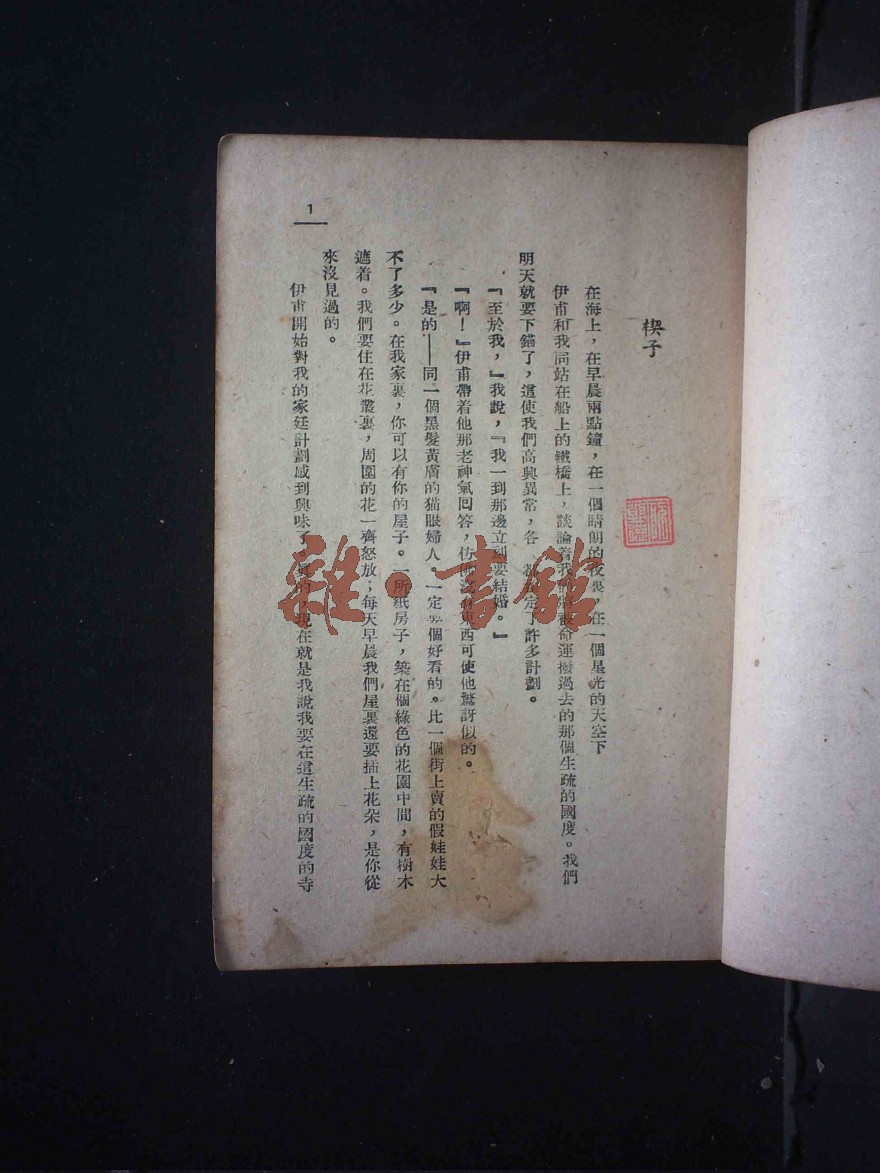 楔子
在海上，在早晨兩點鐘，在一個晴朗的夜裏，在一個星光的天空下
伊甫和我同站在船上的鐵橋上，談論着我們將被命運撥過去的那個生疏的國度。我們
明天就要下錨了，這使我們高興異常，各 定了許多計劃。
『至於我，』我說，『我一到那邊立刻要結婚。』
『啊！』伊甫帶着他那老神氣回答，彷彿沒有東西可使他驚訝似的。
『是的——同一個黑髮黃膚的猫眼婦人。一定要個好看的。比一個街上賣的假娃娃大
不了多少。在我家裏，你可以有你的屋子。一所紙房子，築在個綠色的花園中間，有樹木
遮着。我們要住在花叢裏，周圍的花一齊怒放；每天早晨我們屋裏還要插上花朵，是你從
來沒見過的。
伊甫開始對我的家廷計劃感到興味了。真的，現在就是我說我要在這生疏的國度的寺
1
雜·書館